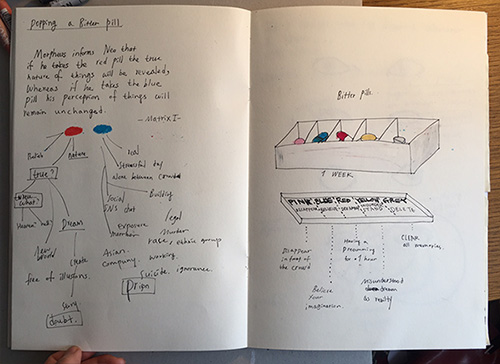 Popping a Bitter pill
Morpheus informs Neo that
if he takes the red pill the true
nature of things will be revealed,
whereas if he takes the blue
pill his perception of things will
remain unchanged.
— Matrix I —
Nature
Real
Stressful day
true?
what?
Human
Dream
New World
Create
free of illusions.
doubt.
Social
SNS chat
exposure
Asian
Company
Bullying
legal
Murder
race, ethnic group
working.
Suicide. ignorance.
Bitter pill.
1 WEEK
PINK BLUE RED YELLOW GREY
DELETE
Disappear
in front of
the crowd
Believe
Your
imagination.
Having a
Dreamming
for 1 hour
Misunderstand
dream
as reality
CLEAR
all memories.